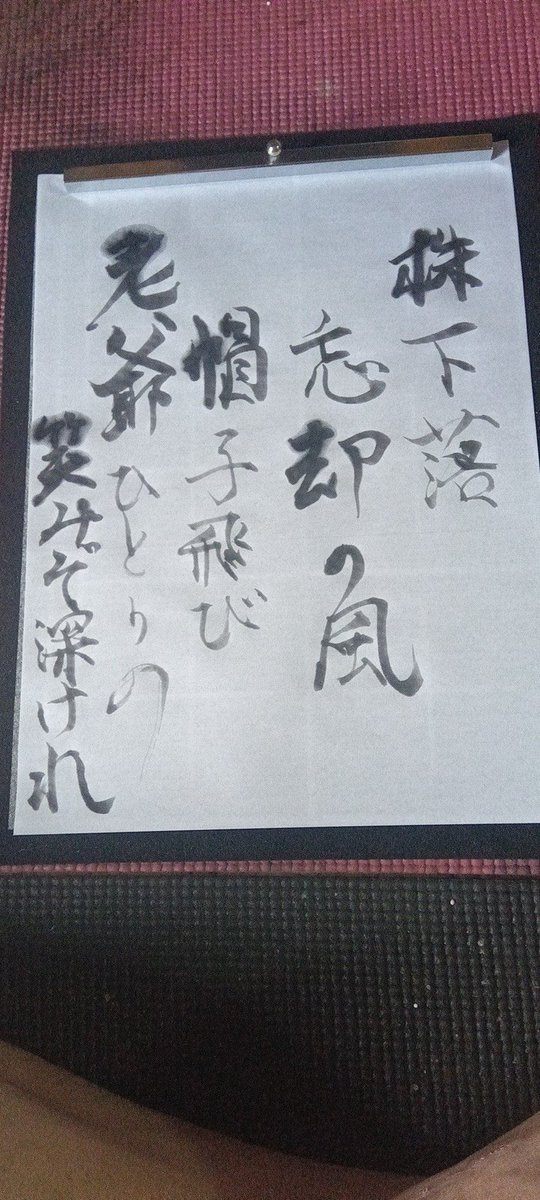 株下落
忘却の風
帽子飛び
老爺ひとりの
笑みぞ深けれ